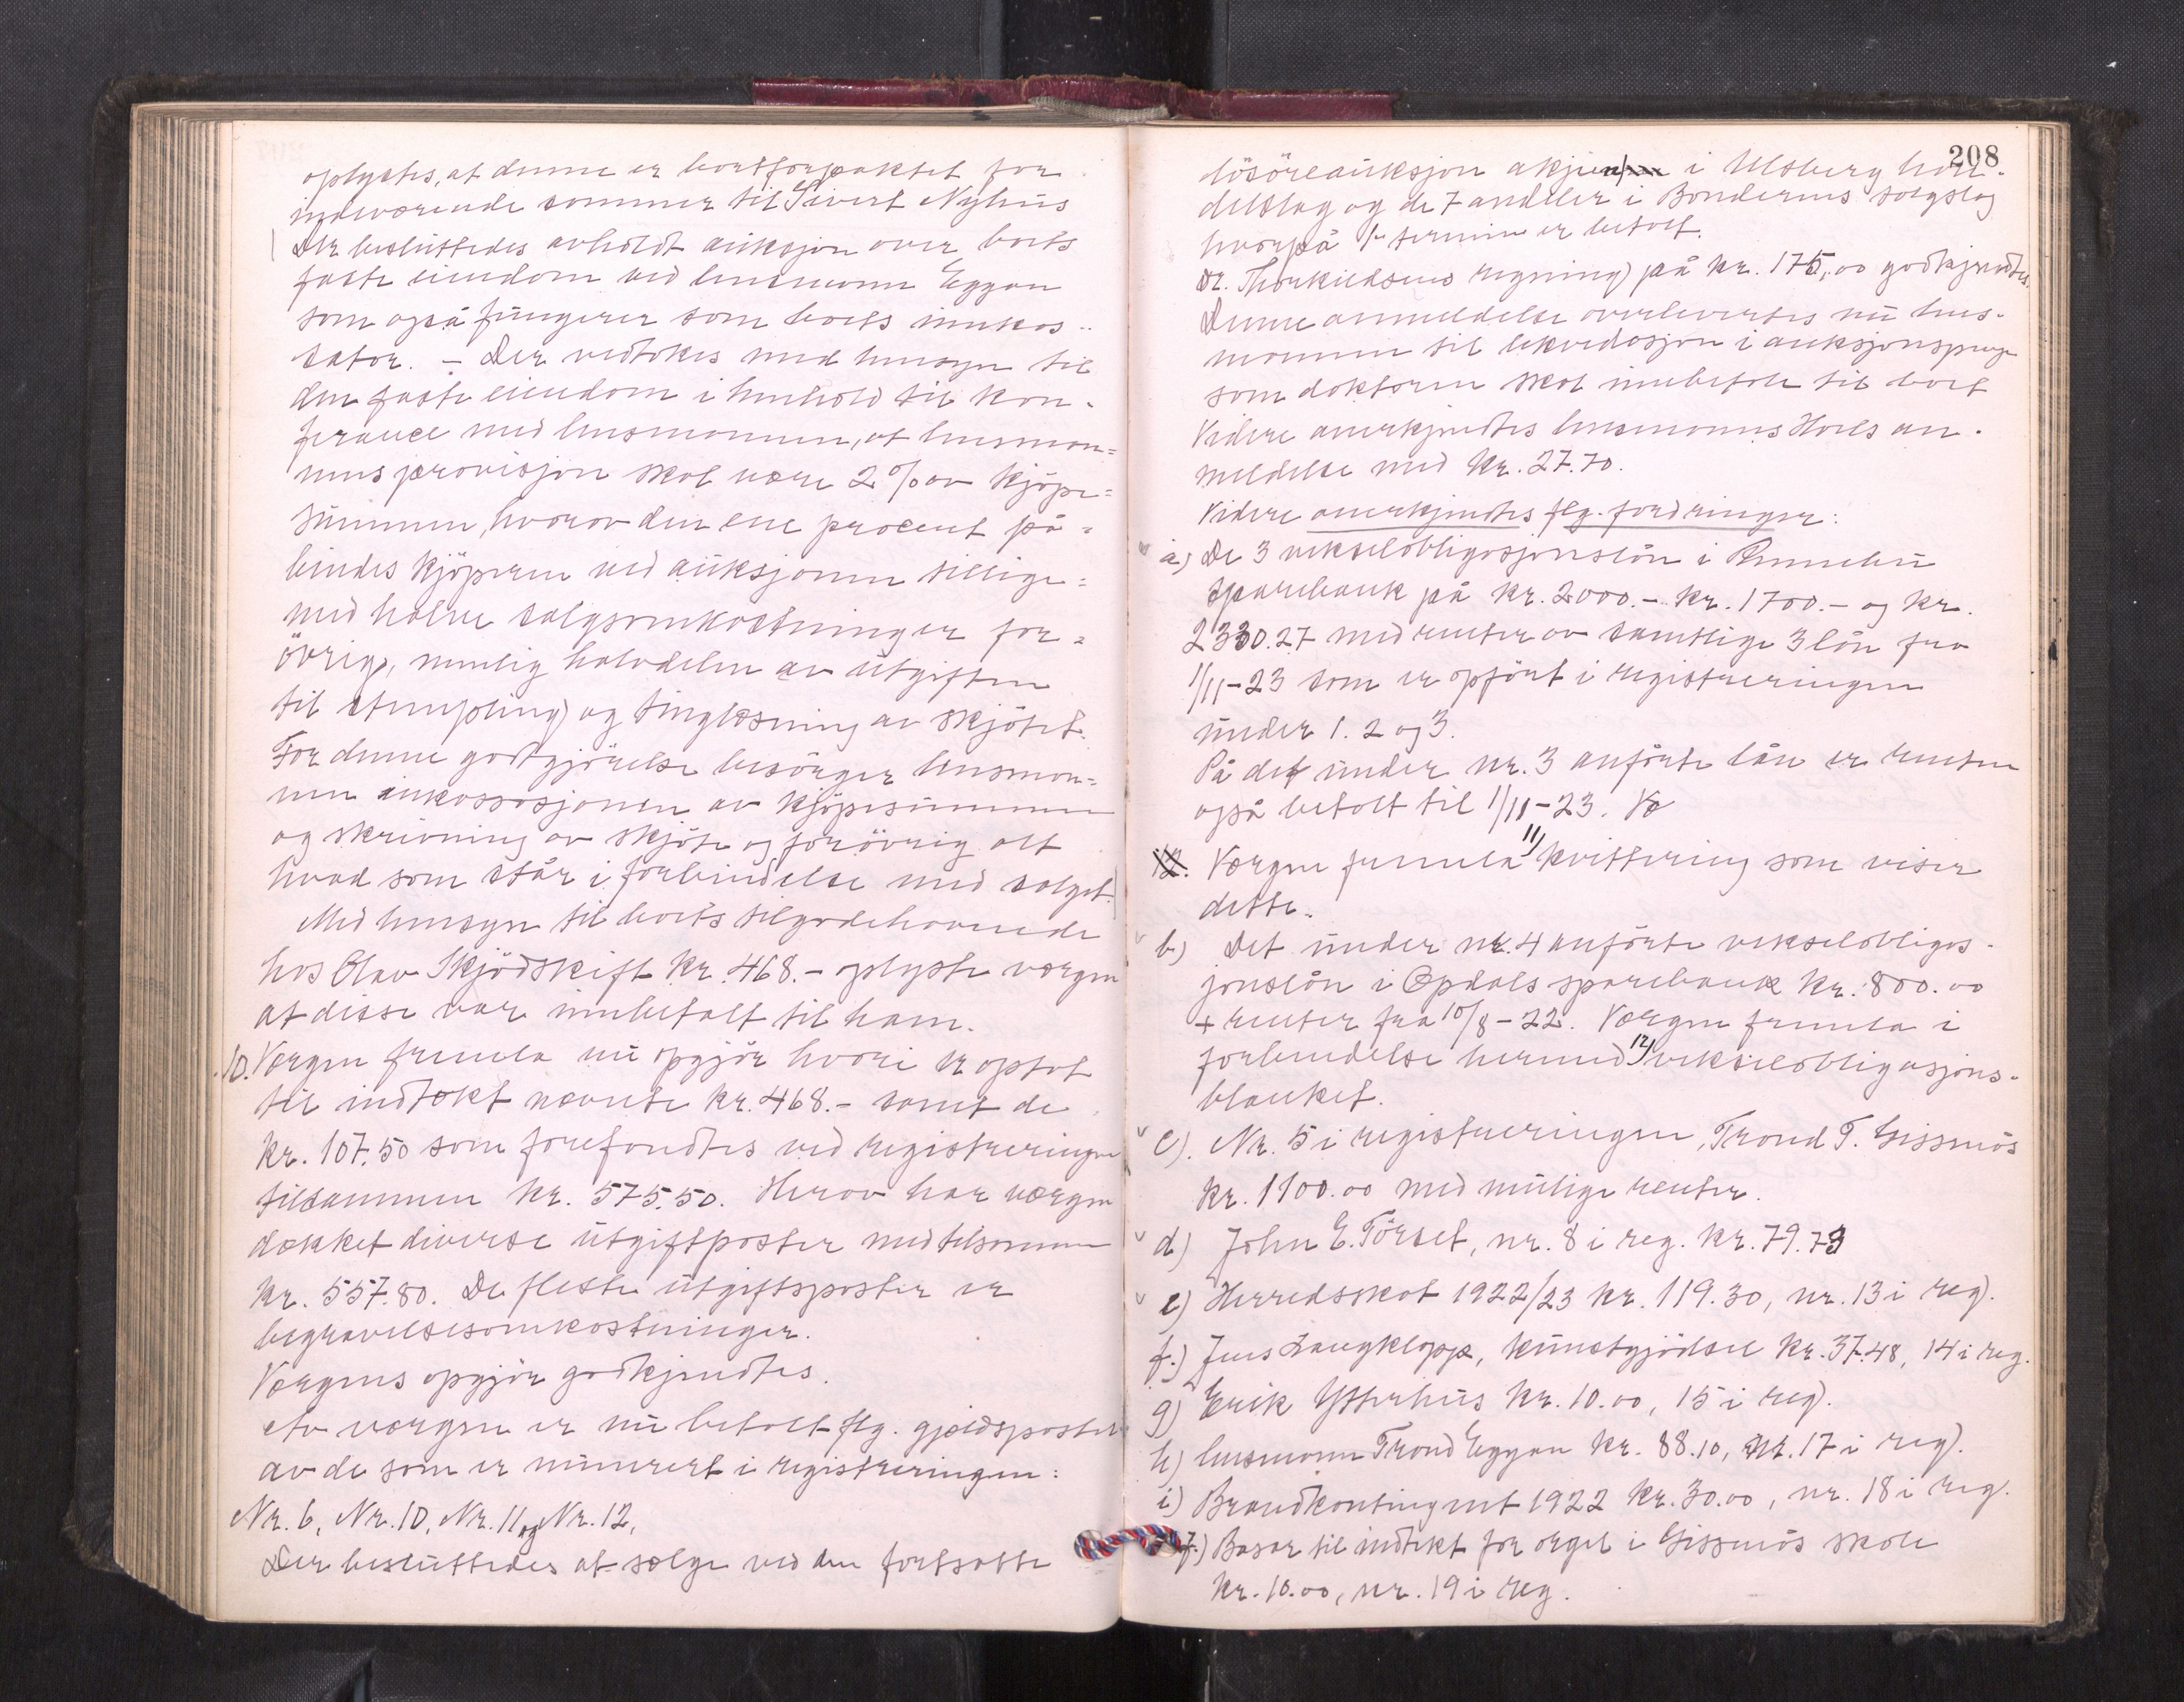 oplystes, at denne er bortforpaktet for
indeværende sommer til Sivert Nyhus
Der besluttedes avholdt auksjon over boets
faste eiendom ved lensmann Eggan
som også fungerer som boets inkas-
sator. – Der vedtokes med hensyn til
den faste eiendom i henhold til kon-
ferance med lensmannen, at lensman=
nens provisjon skal være 2 % av kjöpe=
summen, hvorav den ene procent på=
bindes kjöperen ved auksjonen tillige=
med halve salgsomkostninger for=
övrig, nemlig halvdelen av utgiften
til stempling og tinglæsning av skjötet.
For denne godtgjörelse besörger lensman=
nen inkassasjonen av kjöpesummen
og skrivning av skjöte og forövrig alt
hvad som står i forbindelse med salget.
Med hensyn til boets tilgodehavende
hos Olav Skjödskift kr. 468.- oplyste værgen
at disse var innbetalt til ham.
10. Værgen fremla nu opgjör hvori er optat
til indtækt nævnte kr. 468.- samt de
kr. 107.50 som forefandtes ved registreringen
tilsammen kr. 575.50. Herav har værgen
dækket diverse utgiftposter med tilsammen
kr. 557.80. De fleste utgiftsposter er
begravelsesomkostninger.
Værgens opgjör godkjendtes.
Av værgen er nu betalt flg. gjældsposter
av de som er numrert i registreringen:
Nr. 6, Nr. 10, Nr. 11 og Nr. 12,
Der besluttedes at sælge ved den fortsatte
208
lösöreauksjon aksjen i Ulsberg han-
delslag og de 7 andeler i Böndernes salgslag
hvorpå 1ste termin er betalt.
Dr. Thorkildsens regning på kr. 175,00 godkjendtes.
Denne anmeldelse overlevertes nu lens-
mannen til likvidasjon i auksjonspenge
som doktoren skal innbetale til boet
Videre anerkjendtes lensmanns Hoels an-
meldelse med kr. 27.70.
Videre anerkjendtes flg. fordringer:
a) De 3 vekselobligasjonslån i Rennebu
Sparebank på kr. 2000.- kr. 1700.- og kr.
2330.27 med renter av samtlige 3 lån fra
1/11-23 som er opfört i registreringen
under 1. 2 og 3.
På det under nr. 3 anförte lån er renten
også betalt til 1/11-23.
Værgen fremla 11) kvittering som viser
dette.
b) Det under nr. 4 anförte vekselobligas-
jonslån i Opdals sparebank kr. 800.00
+ renter fra 10/8-22. Værgen fremla i
forbindelse hermed 12) vekselobligasjons-
blanket.
c). Nr. 5 i registreringen, Trond T. Gissnås
kr. 1100.00 med mulige renter.
d) John E. Törset, nr. 8 i reg. kr. 79.73
e) Herredsskat 1922/23 kr. 119.30, nr. 13 i reg.
f.) Jens Langklopp, kunstgjödsel kr. 37.48, 14 i reg.
g) Erik Ytterhus kr. 10.00, 15 i reg.
h) lensmann Trond Eggan kr. 88.10, nr. 17 i reg.
i) Brandkontingent 1922 kr. 30.00, nr. 18 i reg.
j.) Basar til indtækt for orgel i Gissnås skole
kr. 10.00, nr. 19 i reg.